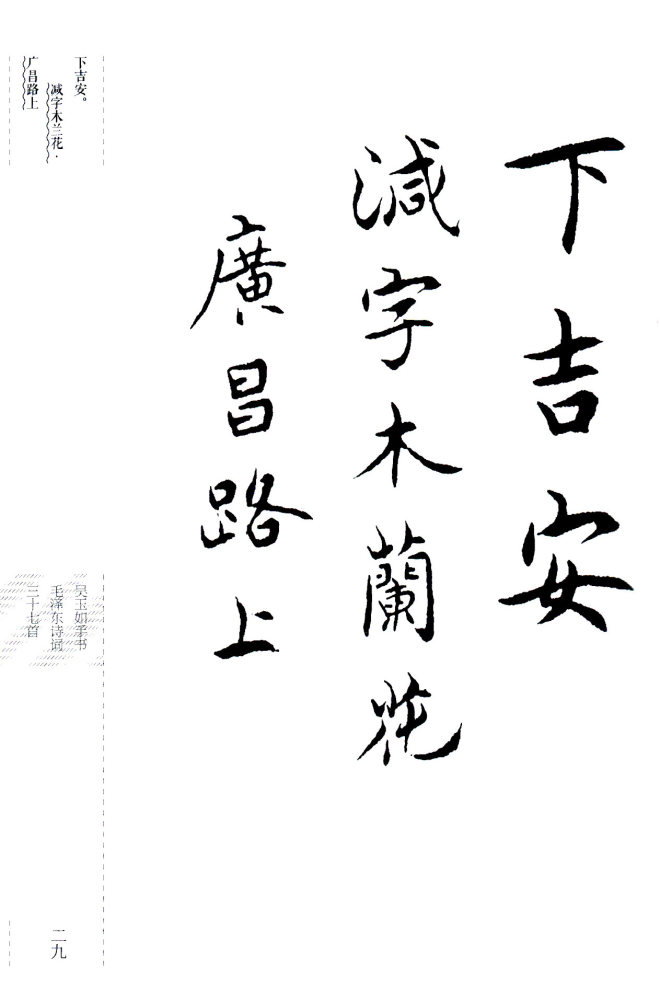 下吉安
減字木蘭花
廣昌路上
下吉安。
减字木兰花·
广昌路上
吴玉如手书
毛泽东诗词
三十七首
二九